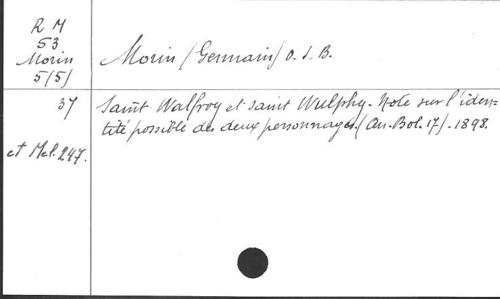 R M
53
Morin
5(5)
Morin (Germain) O. S. B.
37
Saint Walfroy et saint Wulphy. Note sur l'iden=
tité possible des deux personnages. (An. Bol. 17). 1898.
et Mel. 247.